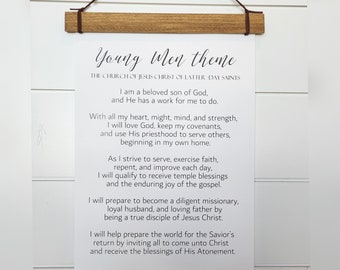 Young Men theme
THE CHURCH OF JESUS CHRIST OF LATTER DAY SAINTS
I am a beloved son of God,
and He has a work for me to do.
With all my heart, might, mind, and strength,
I will love God, keep my covenants,
and use His priesthood to serve others,
beginning in my own home.
As I strive to serve, exercise faith,
repent, and improve each day,
I will qualify to receive temple blessings
and the enduring joy of the gospel.
I will prepare to become a diligent missionary,
loyal husband, and loving father by
being a true disciple of Jesus Christ.
I will help prepare the world for the Savior's
return by inviting all to come unto Christ
and receive the blessings of His Atonement.